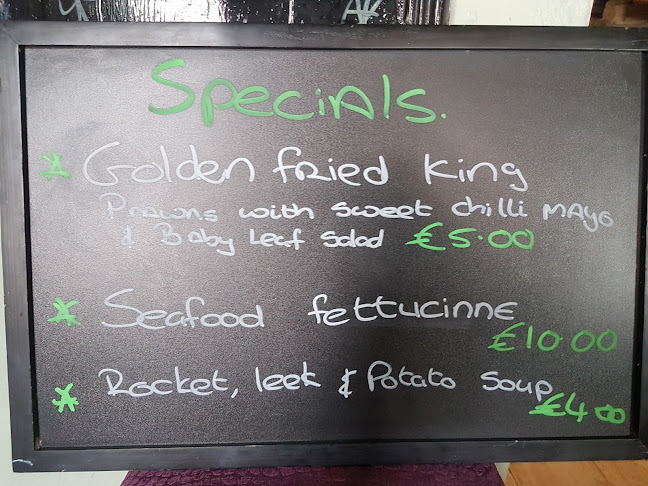 Specials.
* Golden fried king
Prawns with sweet chilli mayo
& Baby Leaf Salad €5.00
* Seafood fettucinne
€10.00
* Rocket, leek & Potato Soup
€4.00